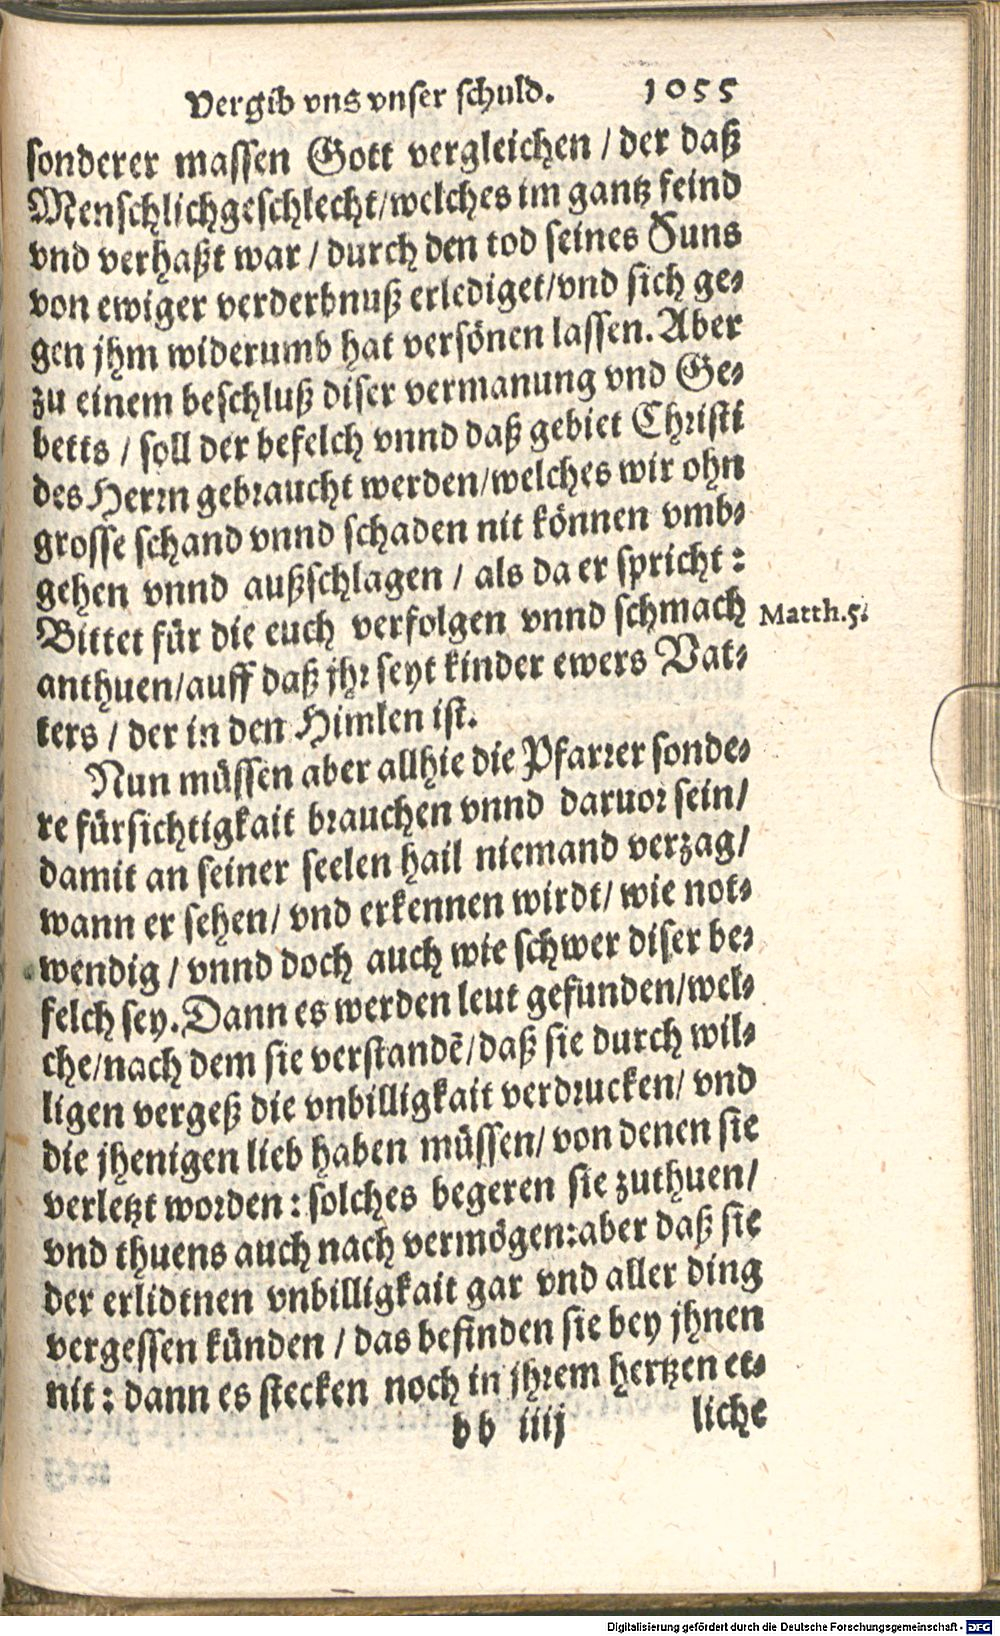 Vergib vns vnser schuld. 1055
sonderer massen Gott vergleichen / der daß
Menschlichgeschlecht/welches im gantz feind
vnd verhaßt war / durch den tod seines Suns
von ewiger verderbnuß erlediget/vnd sich ge-
gen jhm widerumb hat versönen lassen. Aber
zu einem beschluß diser vermanung vnd Ge-
betts / soll der befelch vnnd daß gebiet Christi
des Herrn gebraucht werden/welches wir ohn
grosse schand vnnd schaden nit können vmb-
gehen vnnd außschlagen / als da er spricht :
Bittet für die euch verfolgen vnnd schmach
Matth.5.
anthuen/auff daß jhr seyt kinder ewers Vat-
ters / der in den Himlen ist.
Nun müssen aber allhie die Pfarrer sonde-
re fürsichtigkait brauchen vnnd daruor sein/
damit an seiner seelen hail niemand verzag/
wann er sehen/ vnd erkennen wirdt/ wie not-
wendig / vnnd doch auch wie schwer diser be-
felch sey. Dann es werden leut gefunden/wel-
che/nach dem sie verstandẽ/daß sie durch wil-
ligen vergeß die vnbilligkait verdrucken/ vnd
die jhenigen lieb haben müssen/ von denen sie
verletzt worden : solches begeren sie zuthuen/
vnd thuens auch nach vermögen:aber daß sie
der erlidtnen vnbilligkait gar vnd aller ding
vergessen künden / das befinden sie bey jhnen
nit : dann es stecken noch in jhrem hertzen et-
bb iiij liche
Digitalisierung gefördert durch die Deutsche Forschungsgemeinschaft - DFG